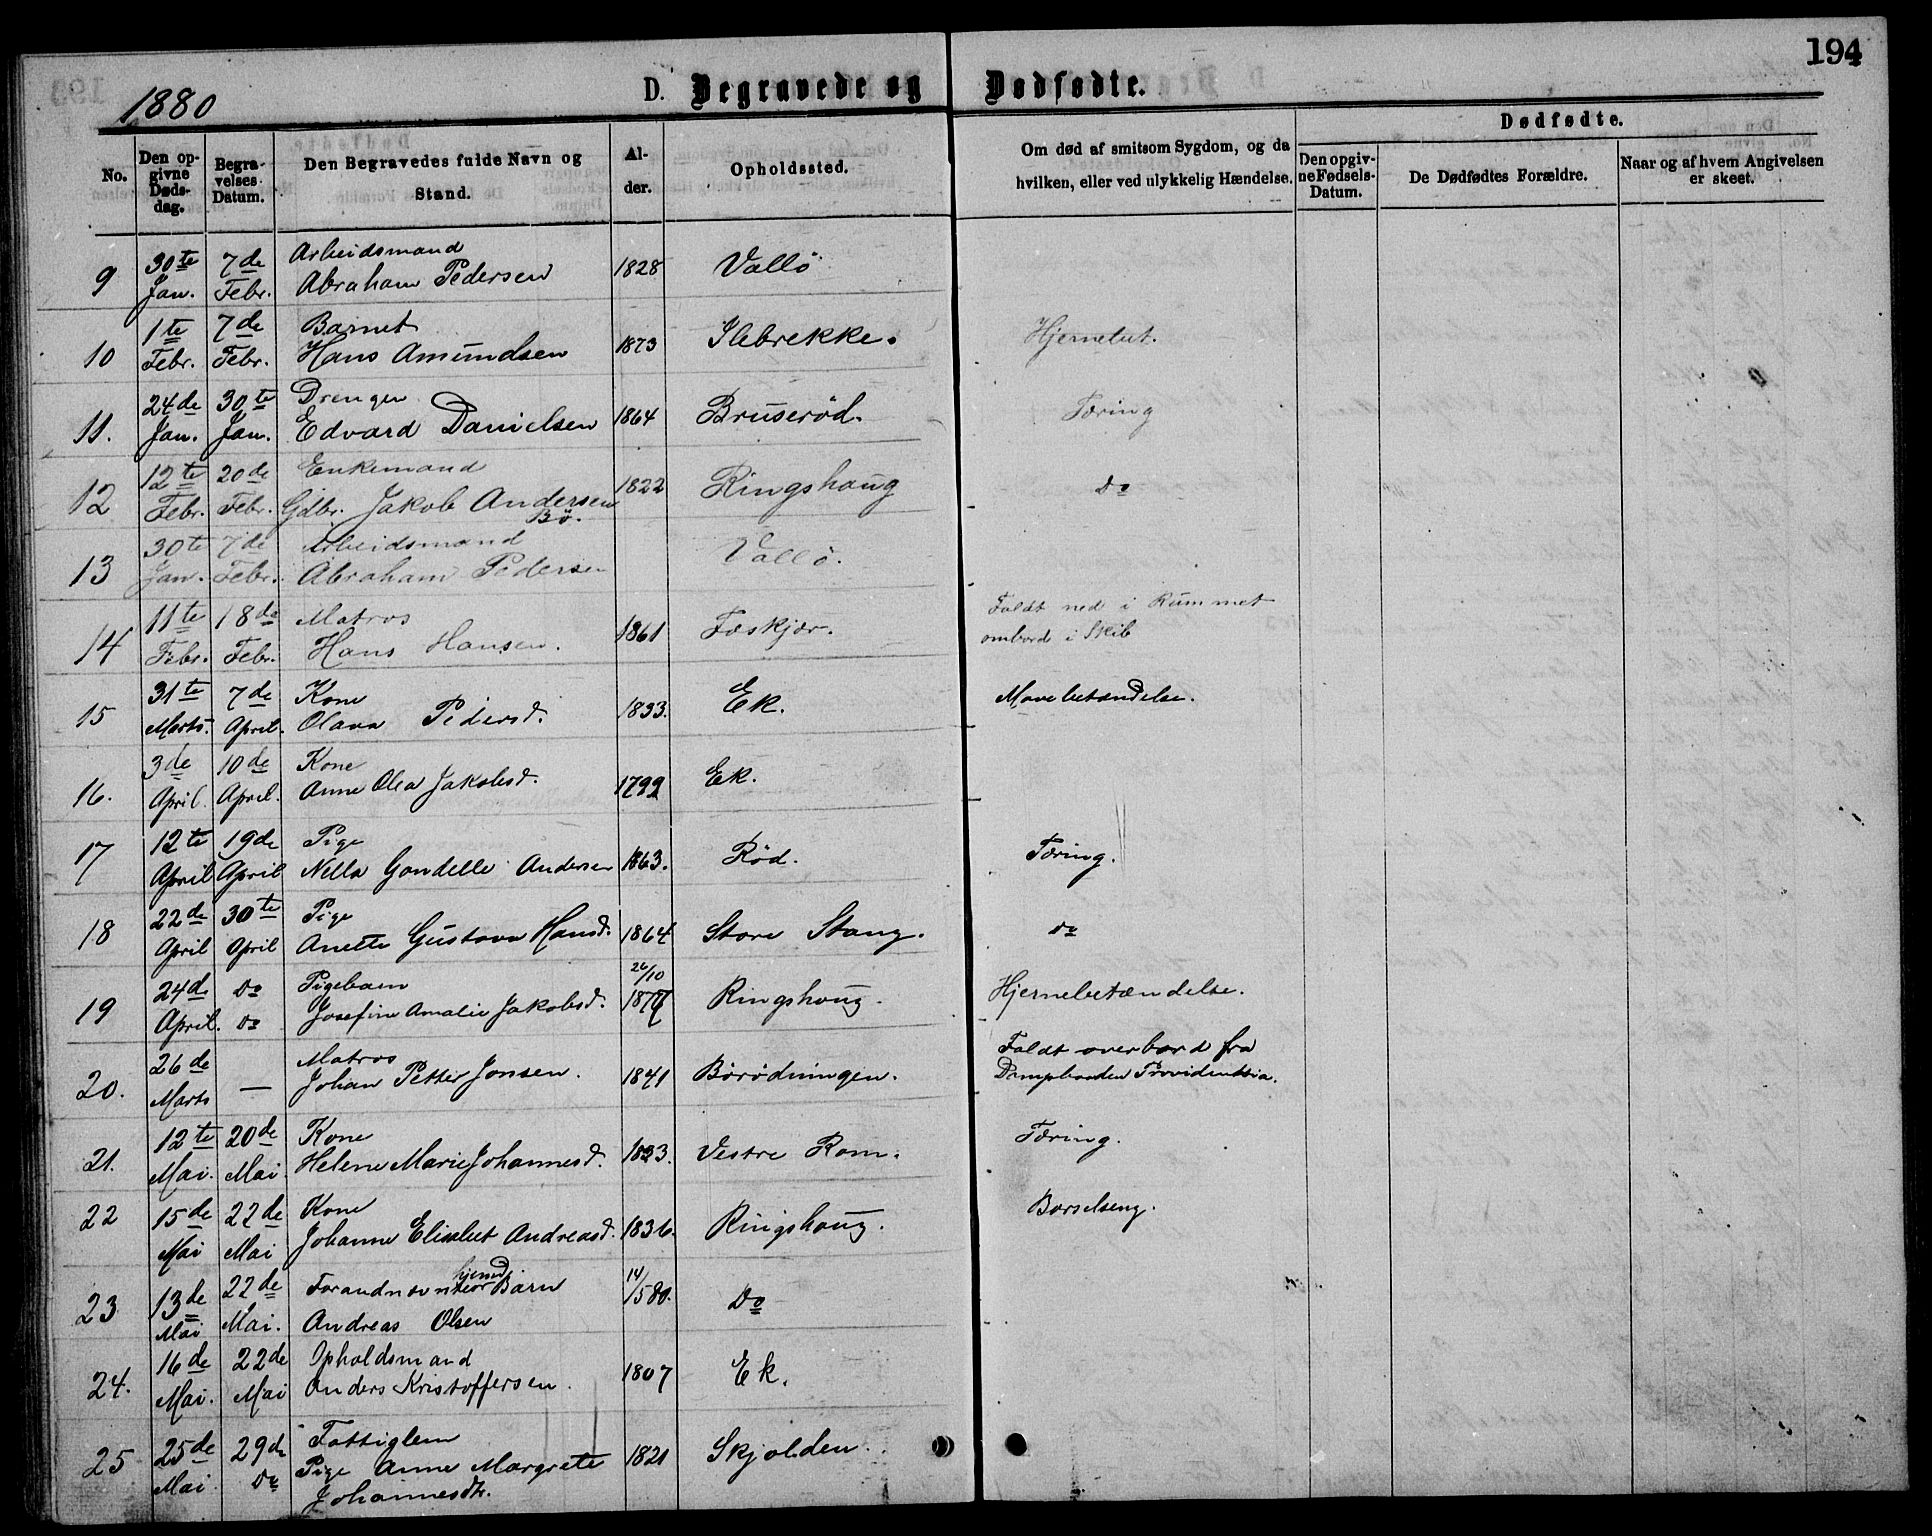 194
1880
D. Begravede og Dødfødte.
No.
Den op-
givne
Døds-
dag.
Begra-
velses-
Datum.
Den Begravedes fulde Navn og
Stand.
Al-
der.
Opholdssted.
Om død af smitsom Sygdom, og da
hvilken, eller ved ulykkelig Hændelse.
Dødfødte.
Den opgiv-
ne Fødsels-
Datum.
De Dødfødtes Forældre.
Naar og af hvem Angivelsen
er skeet.
30te 7de Arbeidsmand
9 Jan. Febr. Abraham Pedersen 1828 Vallö
1te 7de Barnet
10 Febr. Febr. Hans Amundsen 1873 Ilebrekke. Hjernebet.
24de 30te Drengen
11. Jan. Jan. Edvard Danielsen 1864 Bruserød. Tæring
12te 20de Enkemand
12 Febr. Febr. Gdbr. Jakob Andersen 1822 Ringshaug Do
Bö.
30te 7de Arbeidsmand
13 Jan. Febr. Abraham Pedersen Vallö.
11te 18de Matros
14 Febr. Febr. Hans Hansen. 1861 Fæskjær. Faldt ned i Rummet
ombord i Skib
31te 7de Kone
15 Marts. April. Olava Pedersd. 1833. Ek. Mavebetændelse.
3de 10de Kone
16. April. April. Anne Olea Jakobsd. 1799 Ek.
12te 19de Pige
17 April April Nella Gondelle Andersen 1863. Rød. Tæring.
22de 30te Pige
18 April April Anette Gustava Hansd. 1864 Store Stang. Do
24de Do Pigebarn 26/10
19 April. Do Josefine Amalie Jakobsd. 1877 Ringshoug. Hjernebetændelse.
26de Matros
20. Marts — Johan Petter Jonsen. 1841 Börödningen. Faldt overbord fra
Dampbaaden Providentsia.
12te 20de Kone
21. Mai. Mai. Helene Marie Johannesd. 1823. Vestre Rom. Tæring.
22 15de 22de Kone
Mai Mai Johanne Elisabet Andreasd. 1836. Ringshoug. Barselseng.
hjemd.
13de 22de Barn 14/5 80.
23 Mai Mai. Andreas Olsen Do
16de 22de Opholdsmand
24. Mai. Mai Anders Kristoffersen. 1807 Ek.
25de 29de Fattiglem
25 Mai Do Pige Anne Margrete 1821 Skjolden.
Johannesdtr.